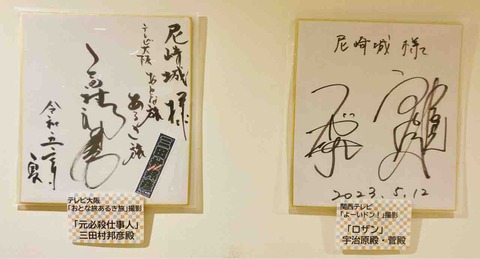 尼崎城 様
テレビ大阪
おとな旅
あるき旅
令和五年
テレビ大阪
「おとな旅あるき旅」撮影
「元必殺仕事人」
三田村邦彦殿
尼崎城 様
2023.5.12
関西テレビ
「よーいドン!」撮影
「ロザン」
宇治原殿・菅殿